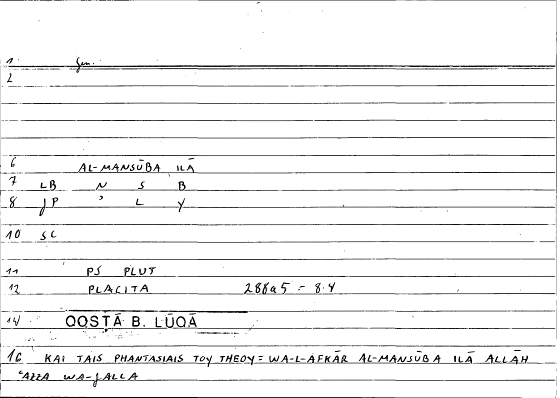 1 Gen.
2
6 AL-MANSŪBA ILĀ
7 LB N S B
8 JP ' L Y
10 SC
11 PS PLUT
12 PLACITA 288a5 - 8.4
14 QOSṬĀ B. LŪQĀ
16 KAI TAIS PHANTASIAIS TOY THEOY = WA-L-AFKĀR AL-MANSŪBA ILĀ ALLĀH
ʿAZZA WA-JALLA